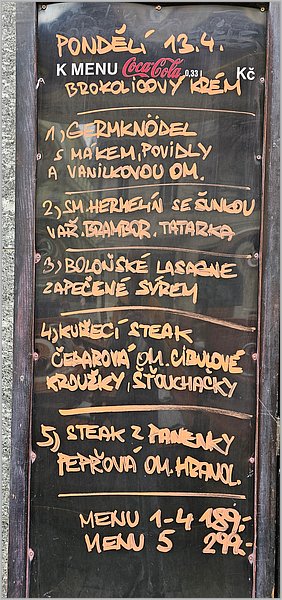 PONDĚLÍ 13.4.
K MENU Coca-Cola 0,33 l Kč
BROKOLICOVÝ KRÉM
1) GERMKNÖDEL
S MÁKEM, POVIDLY
A VANILKOVOU OM.
2) SM. HERMELÍN SE ŠUNKOU
VAŘ. BRAMBOR. TATARKA
3) BOLOŇSKÉ LASAGNE
ZAPEČENÉ SÝREM
4) KUŘECÍ STEAK
ČEDAROVÁ OM. CIBULOVÉ
KROUŽKY, ŠŤOUCHAČKY
5) STEAK Z PANENKY
PEPŘOVÁ OM. HRANOL.
MENU 1-4 189,-
MENU 5 299,-